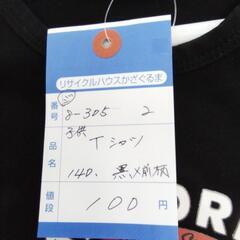 リサイクルハウスかざぐるま
番号 8-305 2
品名 子供 Tシャツ
140、黒×前柄
値段 100円
ORI